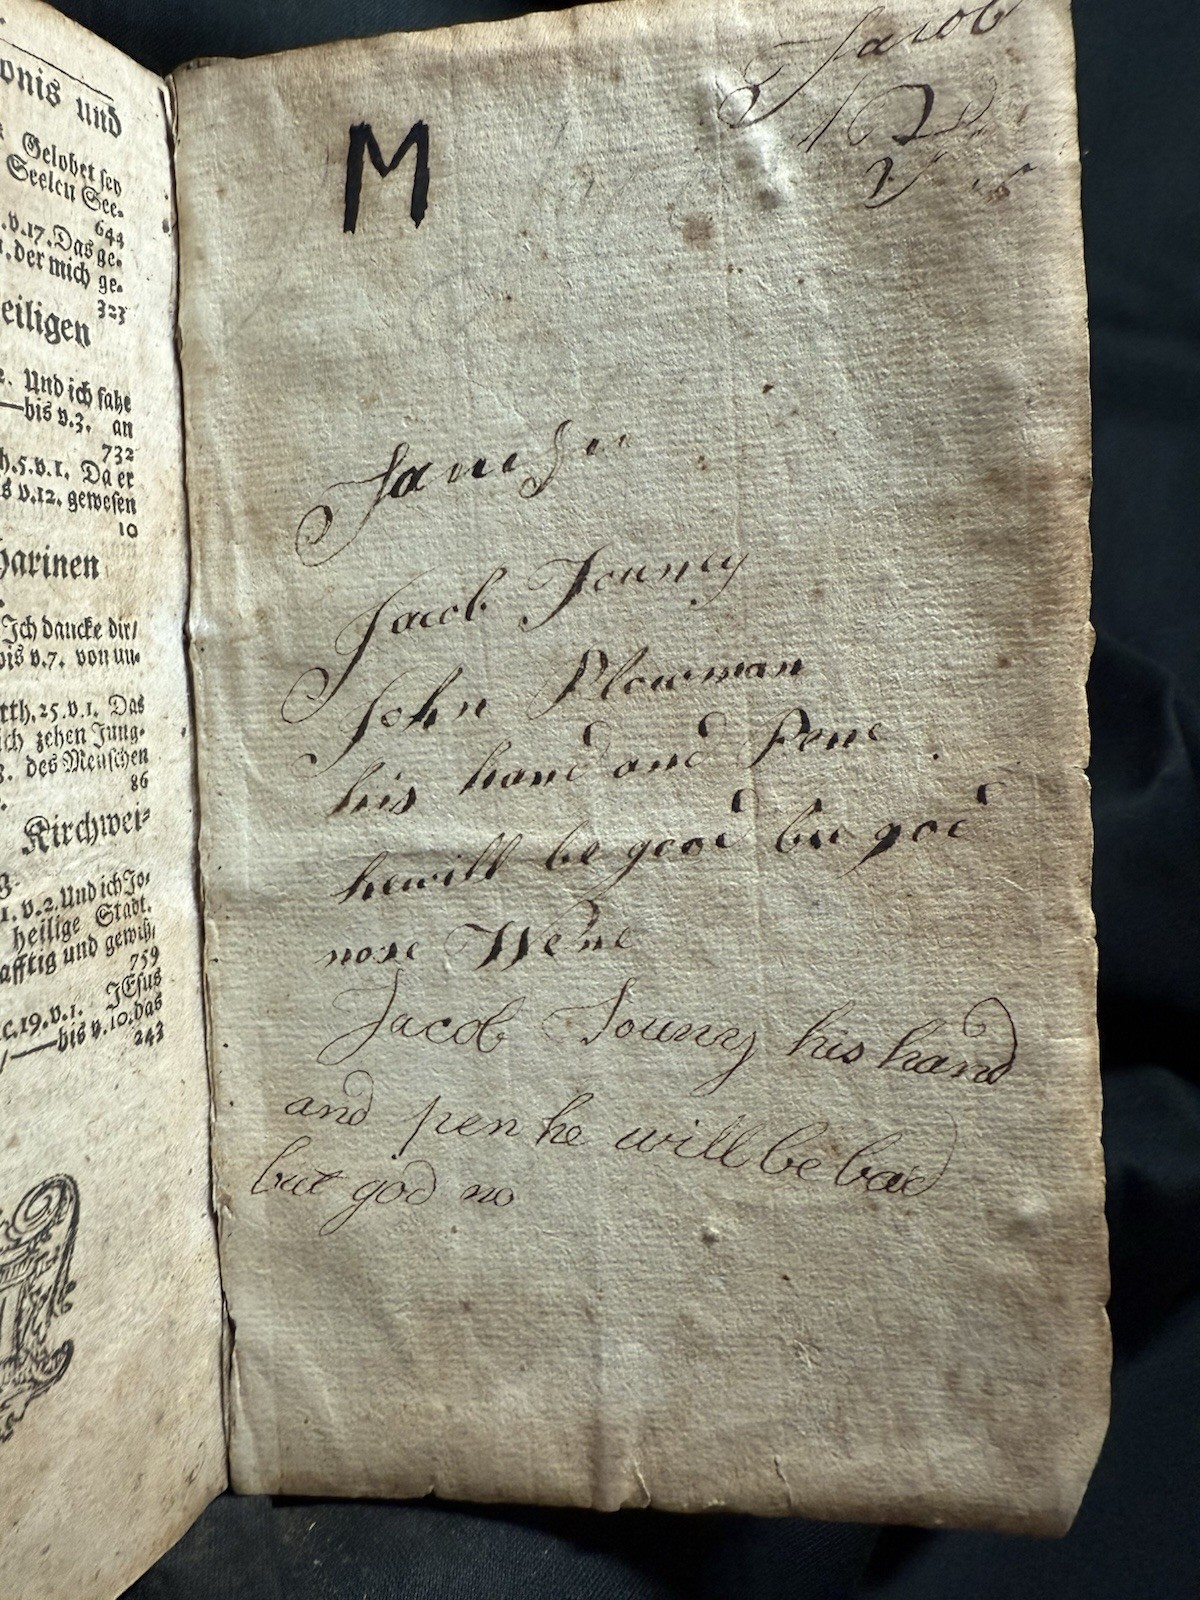 onis und
Gelobet sey
Seelen See-
644
.v.17. Das ge-
der mich ge-
323
eiligen
Und ich sahe
—bis v.3. an
732
h.5.v.1. Da er
s v.12. gewesen
10
harinen
Ich dancke dir/
bis v.7. von un-
tth.25.v.1. Das
ich zehen Jung-
des Menschen
86
Kirchwei-
1.v.2. Und ich Jo-
heilige Stadt.
afftig und gewiß/
759
c.19.v.1. JEsus
/—bis v.10. das
243
Jacob
M
Jacob Youney
John Plowman
his hand and Pene
hewill be good bu god
nose Wene
Jacob Youney his hand
and pen he will be bad
but god no